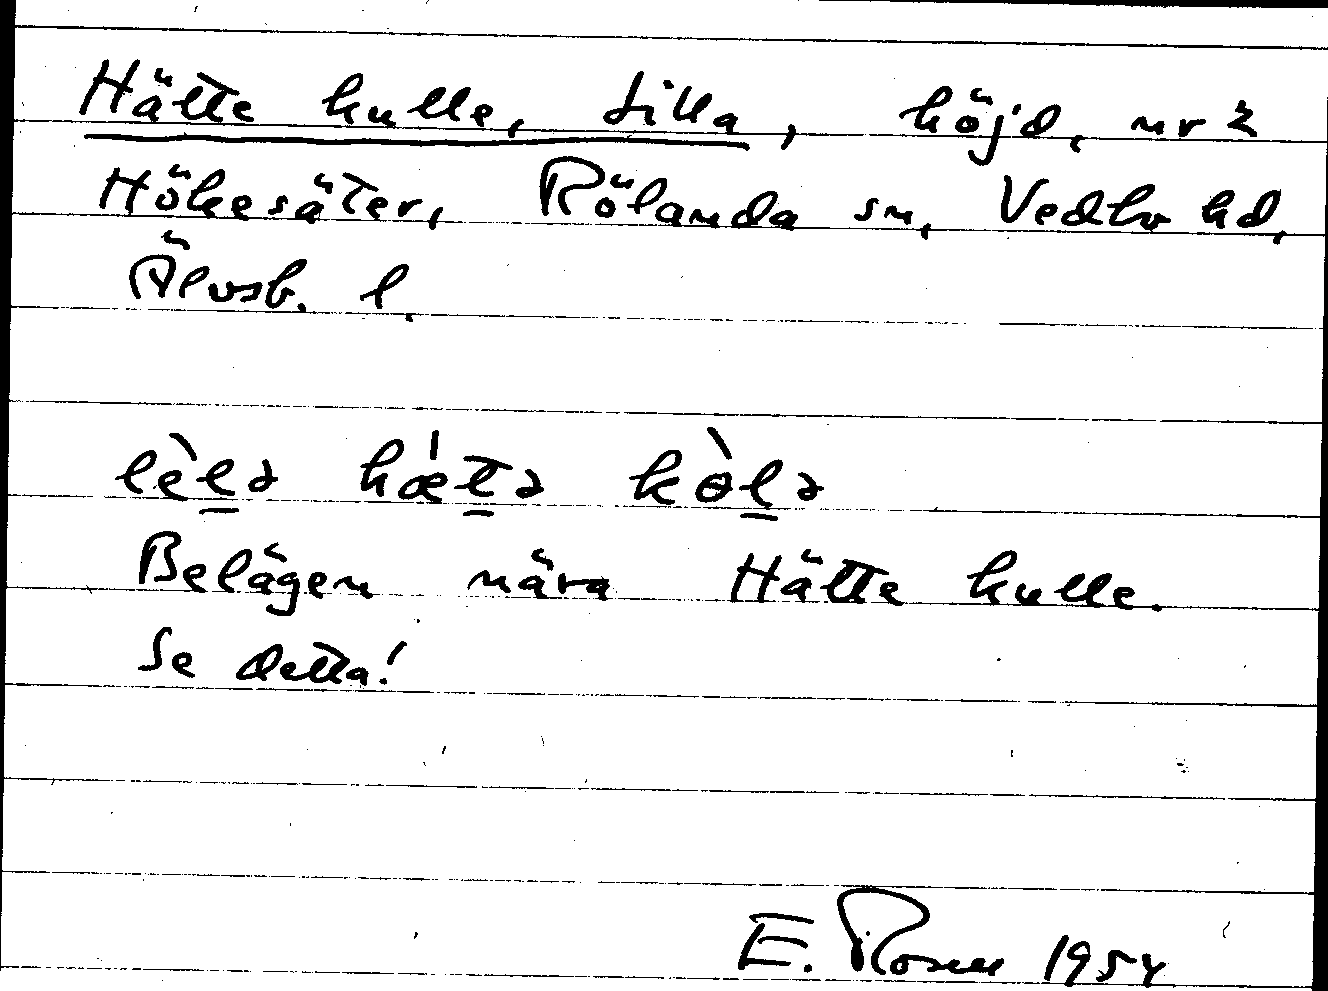 Hätte kulle, Lilla, höjd, nr 2
Hökesäter, Rölanda sn, Vedbo hd,
Älvsb. l.
lèlə hætə kòlə
Belägen nära Hätte kulle.
Se detta!
E. Rosen 1954